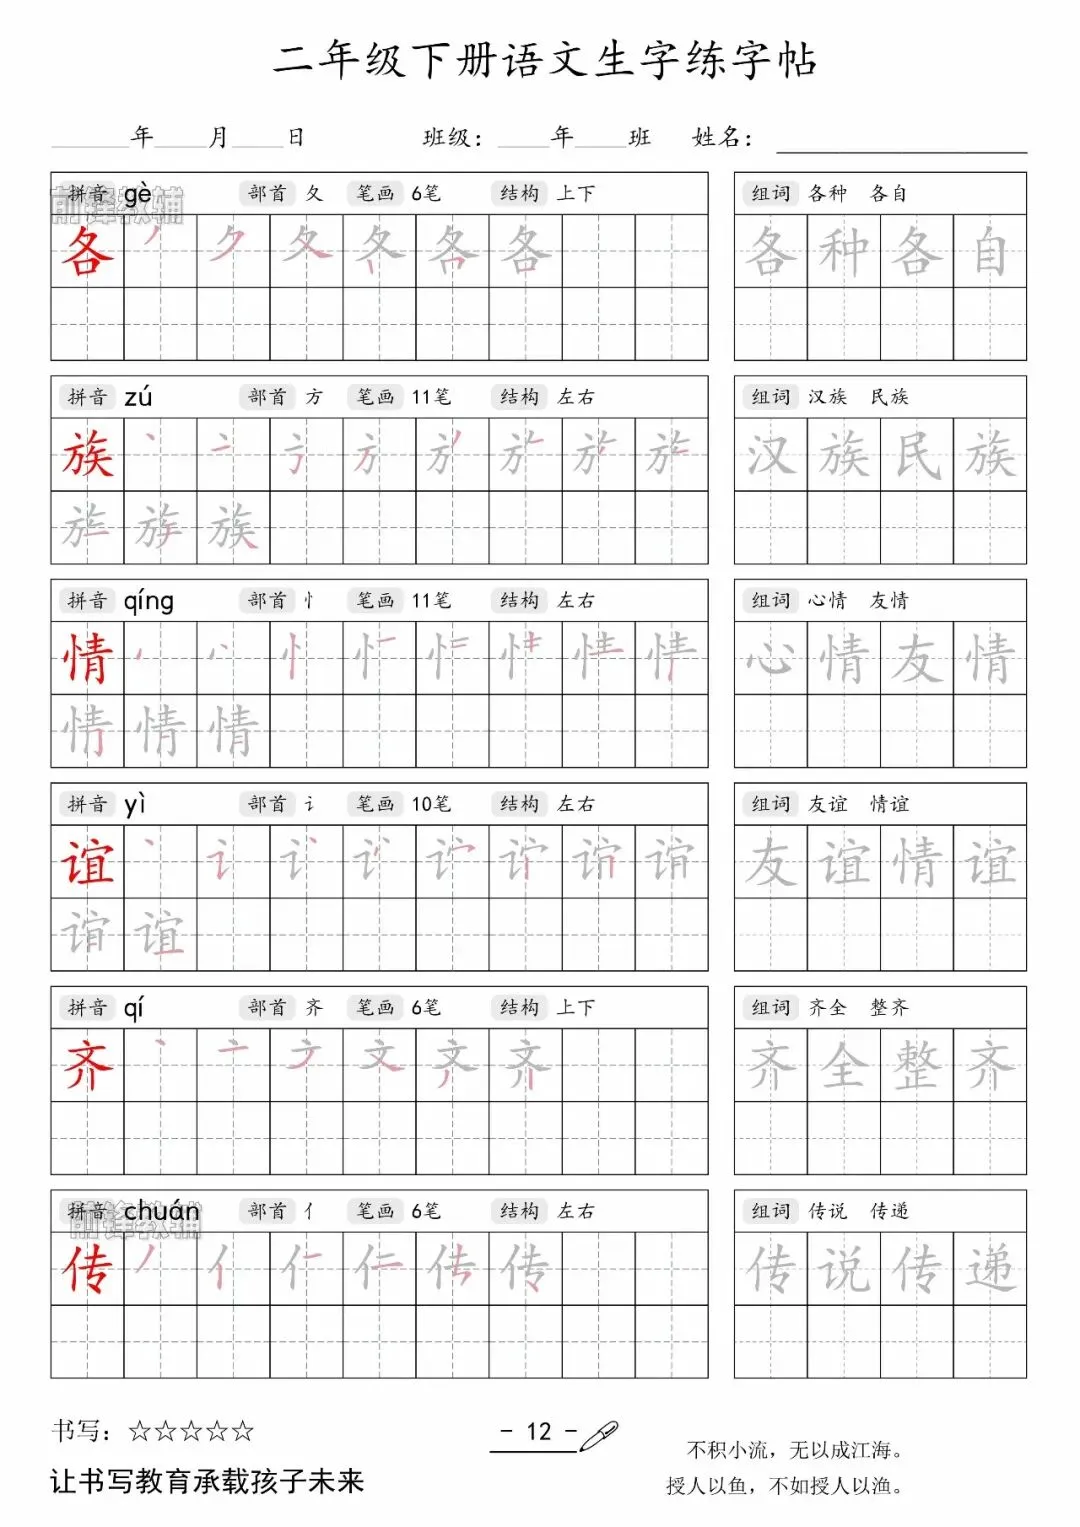 二年级下册语文生字练字帖
____年____月____日 班级：____年____班 姓名：________
拼音 gè 部首 夂 笔画 6笔 结构 上下 组词 各种 各自
前锋教辅
各 各 种 各 自
拼音 zú 部首 方 笔画 11笔 结构 左右 组词 汉族 民族
族 汉 族 民 族
族
拼音 qíng 部首 忄 笔画 11笔 结构 左右 组词 心情 友情
情 心 情 友 情
情 情 情
拼音 yì 部首 讠 笔画 10笔 结构 左右 组词 友谊 情谊
谊 友 谊 情 谊
谊
拼音 qí 部首 齐 笔画 6笔 结构 上下 组词 齐全 整齐
齐 文 齐 齐 全 整 齐
拼音 chuán 部首 亻 笔画 6笔 结构 左右 组词 传说 传递
前锋教辅
传 亻 传 传 说 传 递
书写：☆☆☆☆☆
- 12 -
不积小流，无以成江海。
让书写教育承载孩子未来
授人以鱼，不如授人以渔。